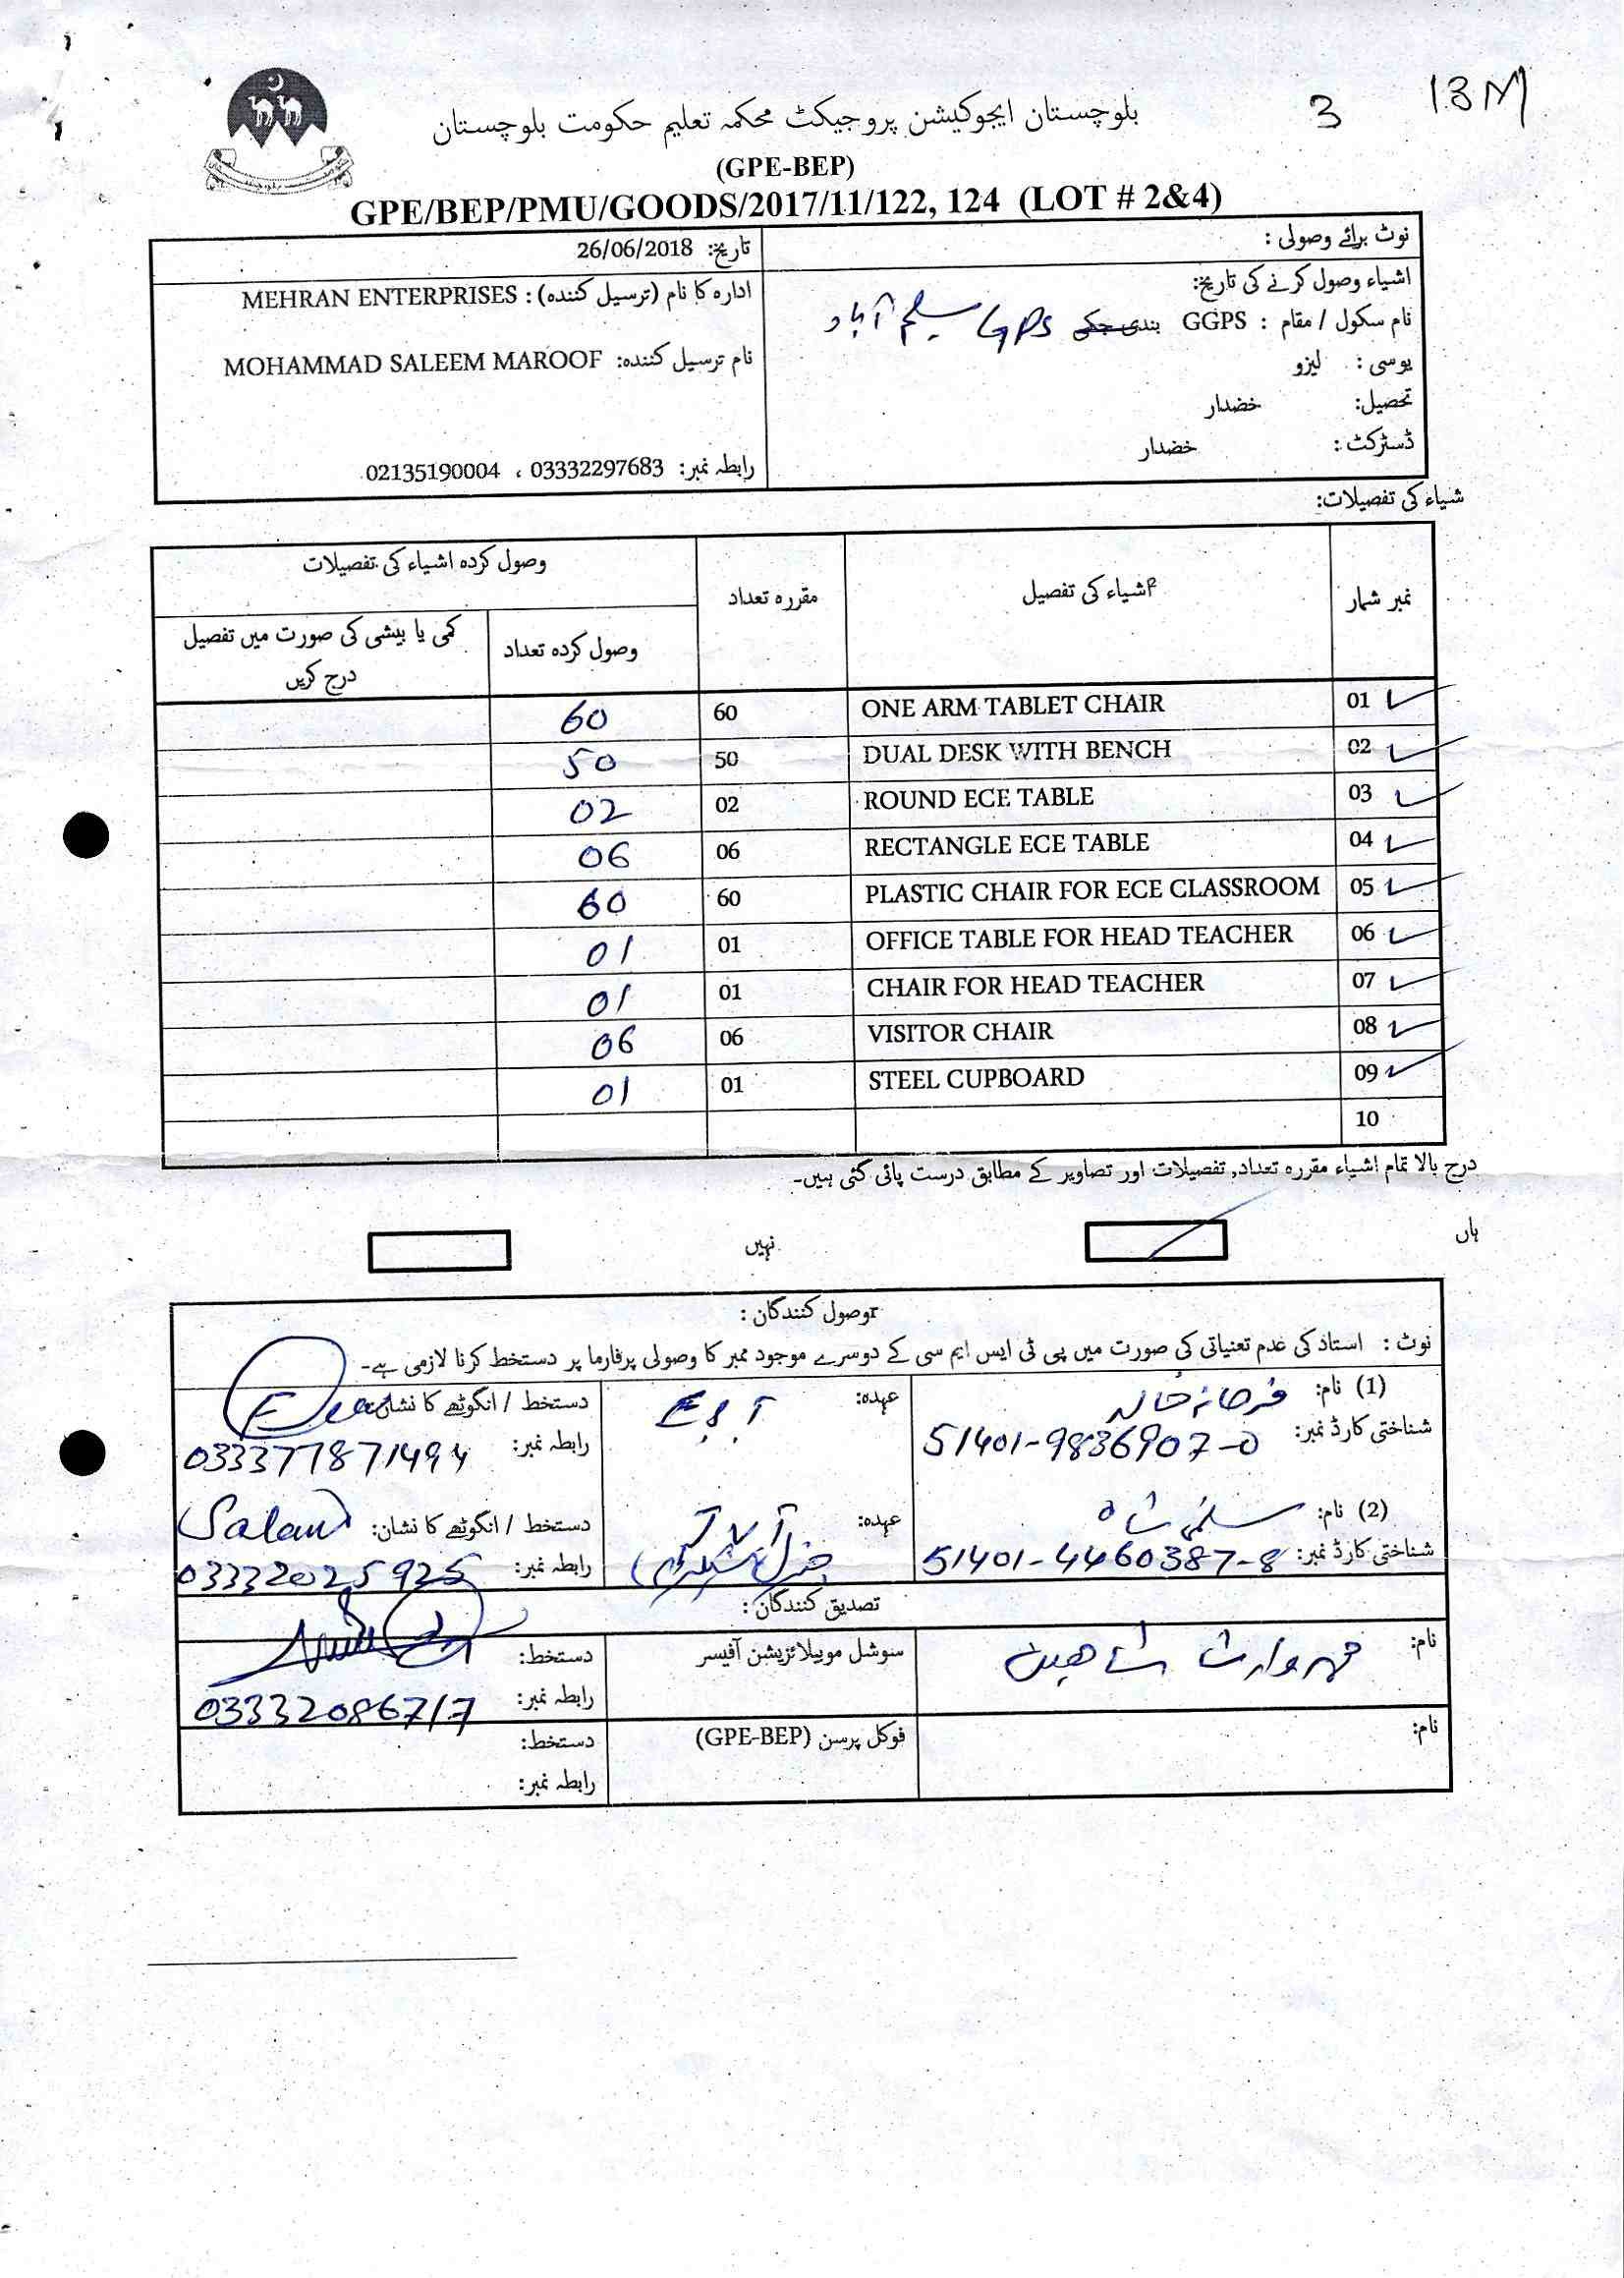 3 13M
بلوچستان ایجوکیشن پروجیکٹ محکمہ تعلیم حکومت بلوچستان
(GPE-BEP)
GPE/BEP/PMU/GOODS/2017/11/122, 124 (LOT # 2&4)
نوٹ برائے وصولی :
اشیاء وصول کرنے کی تاریخ:
نام سکول / مقام : GGPS بندی GPS سلیم آباد
یوسی : لیزو
تحصیل: خضدار
ڈسٹرکٹ : خضدار
تاریخ: 26/06/2018
ادارہ کا نام (ترسیل کنندہ) : MEHRAN ENTERPRISES
نام ترسیل کنندہ: MOHAMMAD SALEEM MAROOF
رابطہ نمبر: 03332297683 ، 02135190004
شیاء کی تفصیلات:
نمبر شمار اشیاء کی تفصیل مقررہ تعداد وصول کردہ اشیاء کی تفصیلات
وصول کردہ تعداد کمی یا بیشی کی صورت میں تفصیل درج کریں
01 ONE ARM TABLET CHAIR 60 60
02 DUAL DESK WITH BENCH 50 50
03 ROUND ECE TABLE 02 02
04 RECTANGLE ECE TABLE 06 06
05 PLASTIC CHAIR FOR ECE CLASSROOM 60 60
06 OFFICE TABLE FOR HEAD TEACHER 01 01
07 CHAIR FOR HEAD TEACHER 01 01
08 VISITOR CHAIR 06 06
09 STEEL CUPBOARD 01 01
10
درج بالا تمام اشیاء مقررہ تعداد, تفصیلات اور تصاویر کے مطابق درست پائی گئی ہیں۔
ہاں نہیں
وصول کنندگان :
نوٹ : استاد کی عدم تعنیاتی کی صورت میں پی ٹی ایس ایم سی کے دوسرے موجود ممبر کا وصولی پرفارما پر دستخط کرنا لازمی ہے۔
(1) نام: فرحانہ خالد عہدہ: دستخط / انگوٹھے کا نشان:
شناختی کارڈ نمبر: 51401-9836907-0 رابطہ نمبر:
(2) نام: سلمیٰ شاہ عہدہ: دستخط / انگوٹھے کا نشان:
شناختی کارڈ نمبر: 51401-4460387-8 رابطہ نمبر: 03332025925
تصدیق کنندگان :
نام: شاہین سوشل موبیلائزیشن آفیسر دستخط:
رابطہ نمبر: 03332086717
نام: فوکل پرسن (GPE-BEP) دستخط:
رابطہ نمبر: